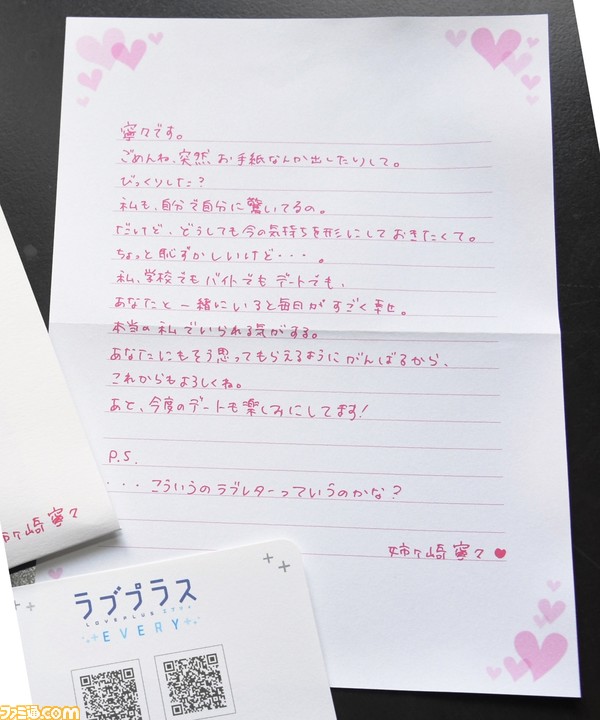 寧々です。
ごめんね、突然、お手紙なんか出したりして。
びっくりした？
私も、自分で自分に驚いてるの。
だけど、どうしても今の気持ちを形にしておきたくて。
ちょっと恥ずかしいけど・・・。
私、学校でもバイトでもデートでも、
あなたと一緒にいると毎日がすごく幸せ。
本当の私でいられる気がする。
あなたにもそう思ってもらえるようにがんばるから、
これからもよろしくね。
あと、今度のデートも楽しみにしてます！
P.S.
・・・こういうのラブレターっていうのかな？
姉ヶ崎寧々♥
ヶ崎寧々
ラブプラス
LOVEPLUS EVERY
EVERY
ファミ通.com